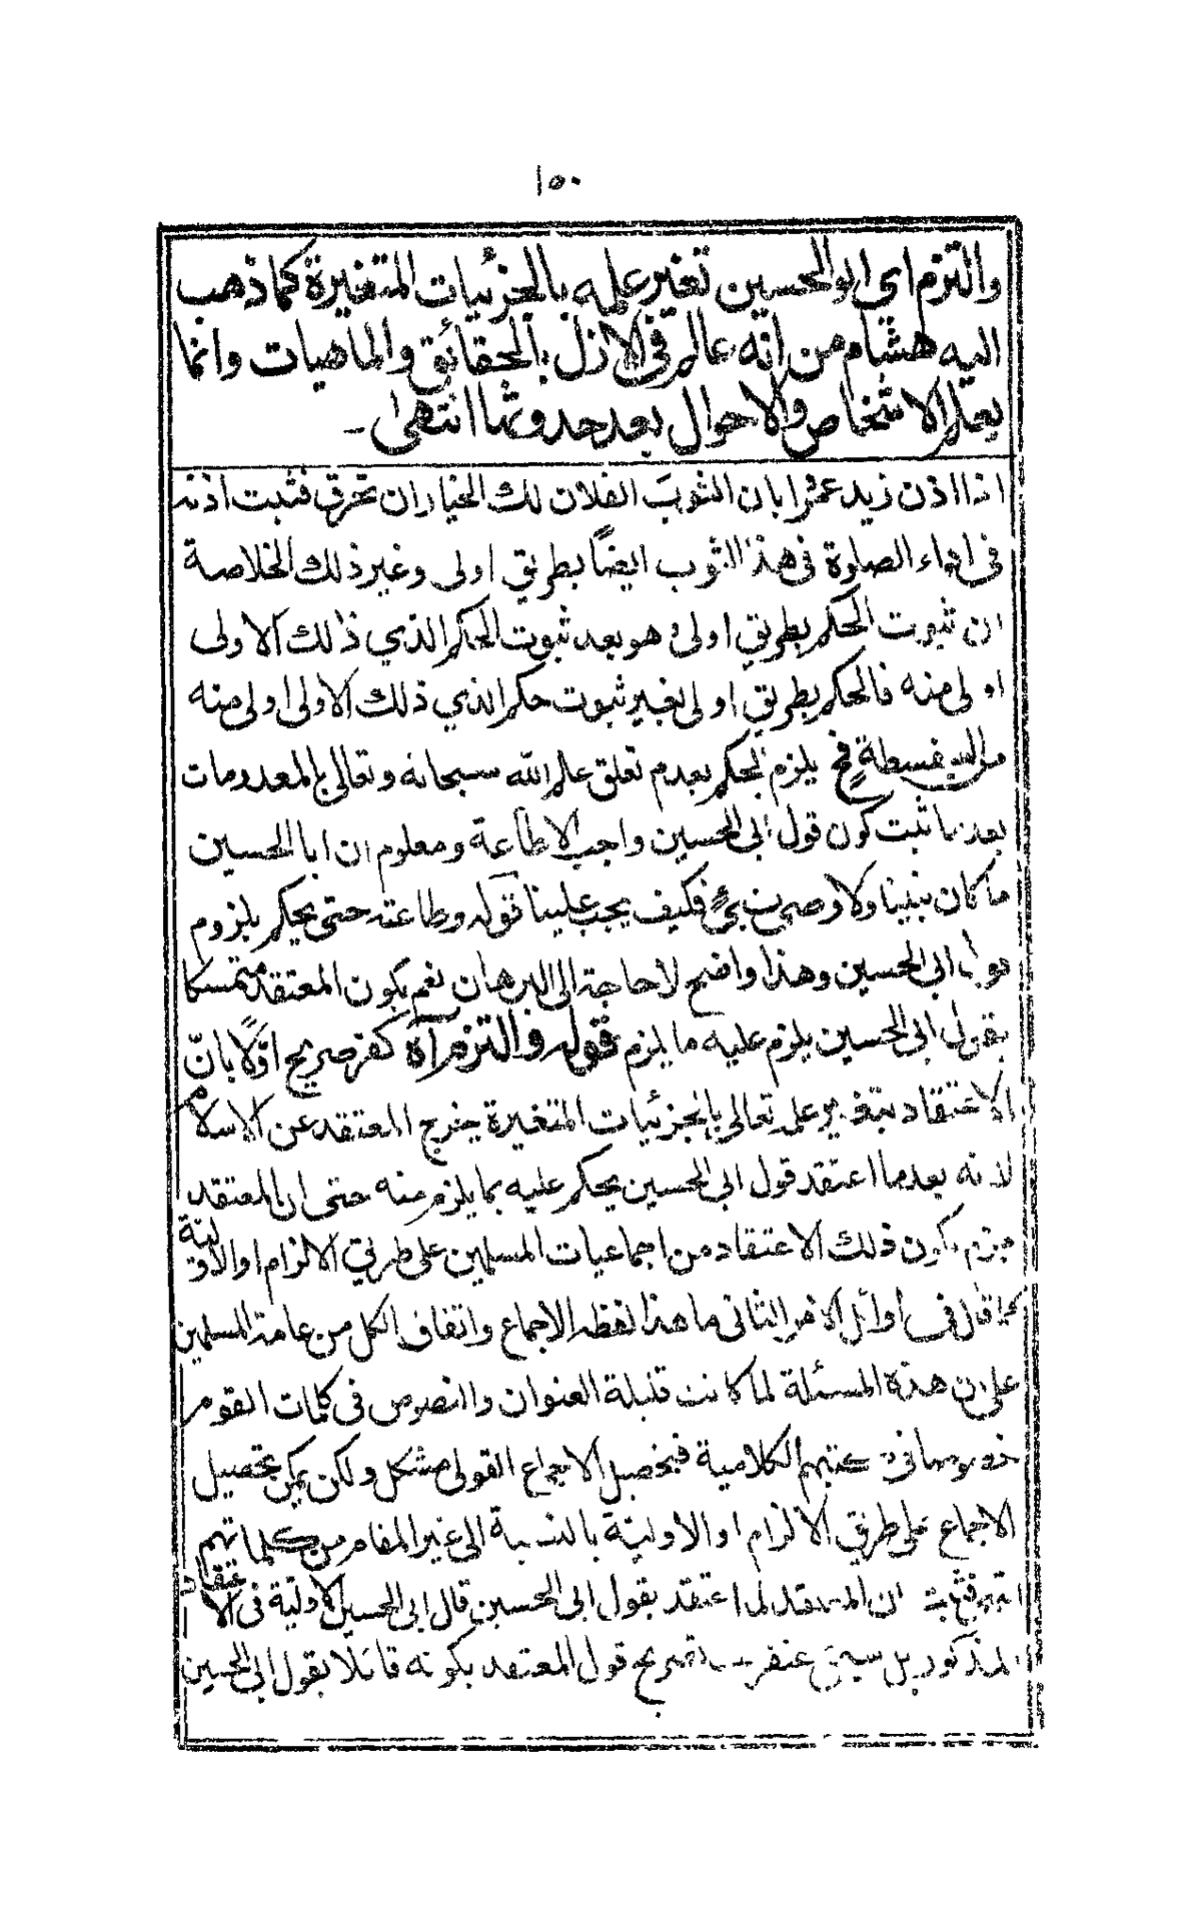 ١٥٠
والتزم اي ابو الحسين تغير علمه بالجزئيات المتغيرة كما ذهب
اليه هشام من انّه عالم فى الازل بالحقائق والماهيات وانما
يعلم الاشخاص والاحوال بعد حدوثها انتهى ـ
اذا اذن زيد عمرا بان الثوب الفلان لك الخيار ان تحرق فثبت اذنه
فى اداء الصلوة فى هذا الثوب ايضاً بطريق اولى وغير ذلك الخلاصة
ان ثبوت الحكم بطريق اولى هو بعد ثبوت الحكم الذي ذلك الاولى
اولى منه فالحكم بطريق اولى بغير ثبوت حكم الذي ذلك الاولى اولى منه
من السفسطة فح يلزم الحكم بعدم تعلق علم الله سبحانه وتعالى بالمعدومات
بعد ما ثبت كون قول ابى الحسين واجب الاطاعة ومعلوم ان ابا الحسين
ما كان نبينا ولا وصى نبىّ فكيف يجب علينا قوله وطاعته حتى يحكم بلزوم
ابى الحسين وهذا واضح لا حاجة الى البرهان نعم يكون المعتقد متمسكا
بقول ابى الحسين يلزم عليه ما يلزم قوله والتزم آه كفر صريح اوّلًا بانّ
الاعتقاد بتغير علمه تعالى بالجزئيات المتغيرة يخرج المعتقد عن الاسلام
لانه بعد ما اعتقد قول ابى الحسين يحكم عليه بما يلزم منه حتى ان المعتقد
يكون ذلك الاعتقاد من اجماعيات المسلمين على طريق الالزام او الاولية
كما قال فى اوائل الامر الثانى ما هذا لفظه الاجماع واتفاق الكل من عامة المسلمين
على ان هذه المسئلة لما كانت قليلة العنوان والنصوص فى كلمات القوم
خصوصا فى كتبهم الكلامية فتحصيل الاجماع القولى مشكل ولكن يمكن تحصيل
الاجماع على طريق الالزام او الاولية بالنسبة الى غير المقام من كلماتهم
ان المعتقد لما اعتقد بقول ابى الحسين قال ابى الحسين الاولية فى الاعتقاد
المذكور بل قول المعتقد بكونه قائلا بقول ابى الحسين